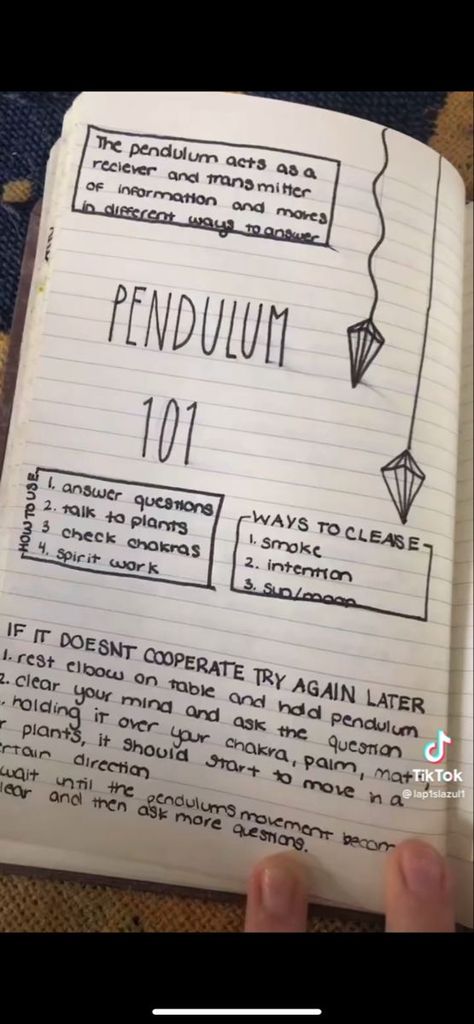 The pendulum acts as a
reciever and transmitter
of information and moves
in different ways to answer
PENDULUM
101
HOW TO USE
1. answer questions
2. talk to plants
3 check chakras
4. spirit work
WAYS TO CLEASE
1. smoke
2. intention
3. sun/moon
IF IT DOESNT COOPERATE TRY AGAIN LATER
1. rest elbow on table and hold pendulum
2. clear your mind and ask the question
. holding it over your chakra, palm, mat
r plants, it should start to move in a
ertain direction
wait until the pendulums movement becom
lear and then ask more questions.
TikTok
@lap1slazul1